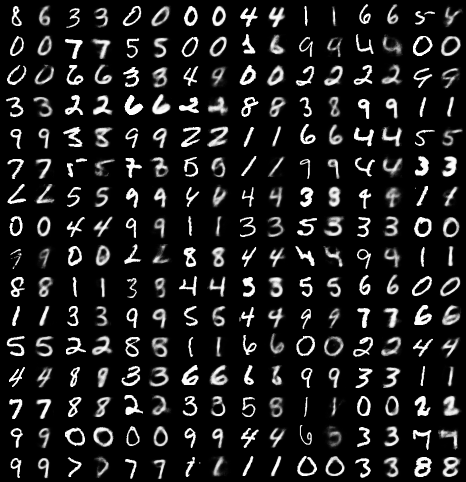 8 6 3 3 0 0 0 0 4 4 1 1 6 6 5
0 0 7 7 5 5 0 0 1 6 9 9 4 4 0 0
0 0 6 6 3 3 4 9 0 0 2 2 2 2 9 9
3 3 2 2 6 6 2 2 8 8 3 8 9 9 1 1
9 9 3 8 9 9 2 2 1 1 6 6 4 4 5 5
7 7 5 5 7 3 5 5 1 1 9 9 4 4 3 3
5 5 9 9 4 4 4 3 8 9 9 1 1
0 0 4 4 9 9 1 1 3 3 5 5 3 3 0 0
9 9 0 0 2 2 8 8 4 4 4 4 9 9 1 1
8 8 1 1 3 8 4 4 3 3 5 5 6 6 0 0
1 1 3 3 9 9 5 6 4 4 9 9 7 7 6 6
5 5 2 2 8 8 1 1 6 6 0 0 2 2 4 4
4 4 8 9 3 3 6 6 6 6 9 9 3 3 1 1
7 7 8 8 2 2 3 3 5 8 1 1 0 0 2 2
9 9 0 0 0 0 9 9 4 4 6 5 3 3 7 7
9 9 7 7 7 7 1 1 1 1 0 0 3 3 8 8